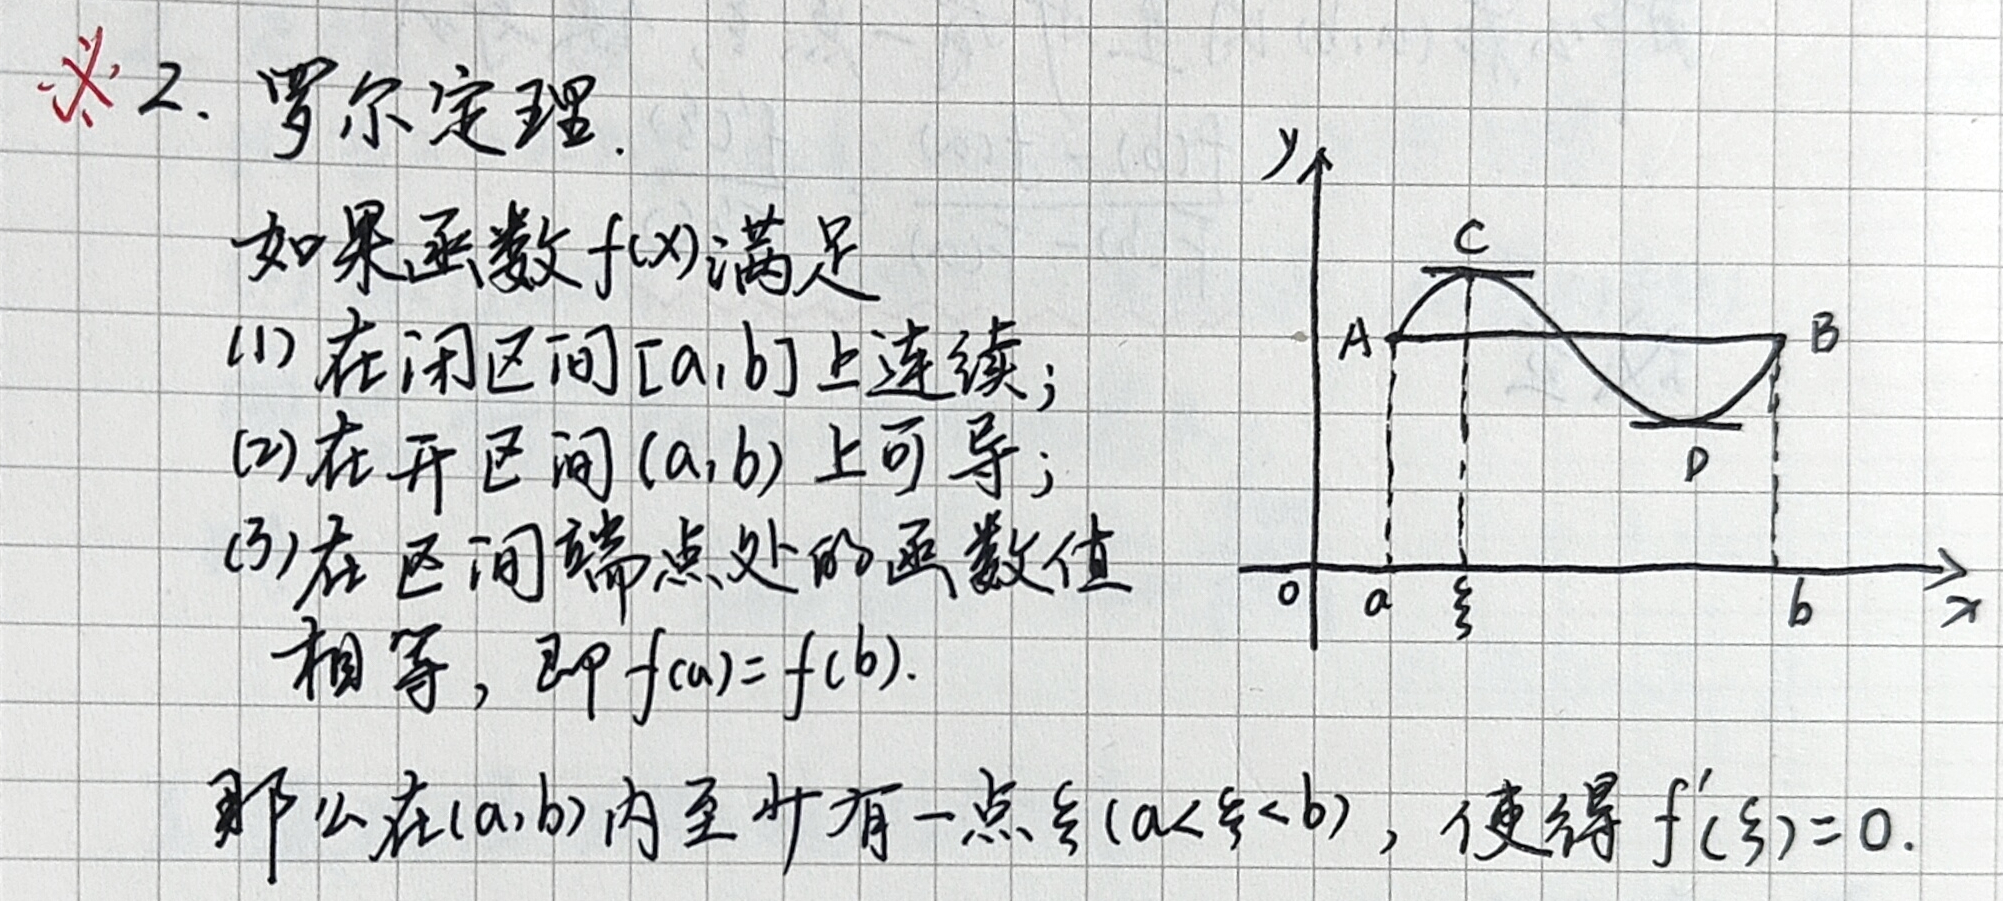 ※ 2. 罗尔定理.
如果函数 f(x) 满足
(1) 在闭区间 [a,b] 上连续;
(2) 在开区间 (a,b) 上可导;
(3) 在区间端点处的函数值
相等, 即 f(a)=f(b).
那么在(a,b)内至少有一点ξ(a<ξ<b), 使得 f'(ξ)=0.
y
C
A
B
D
0
a
ξ
b
x